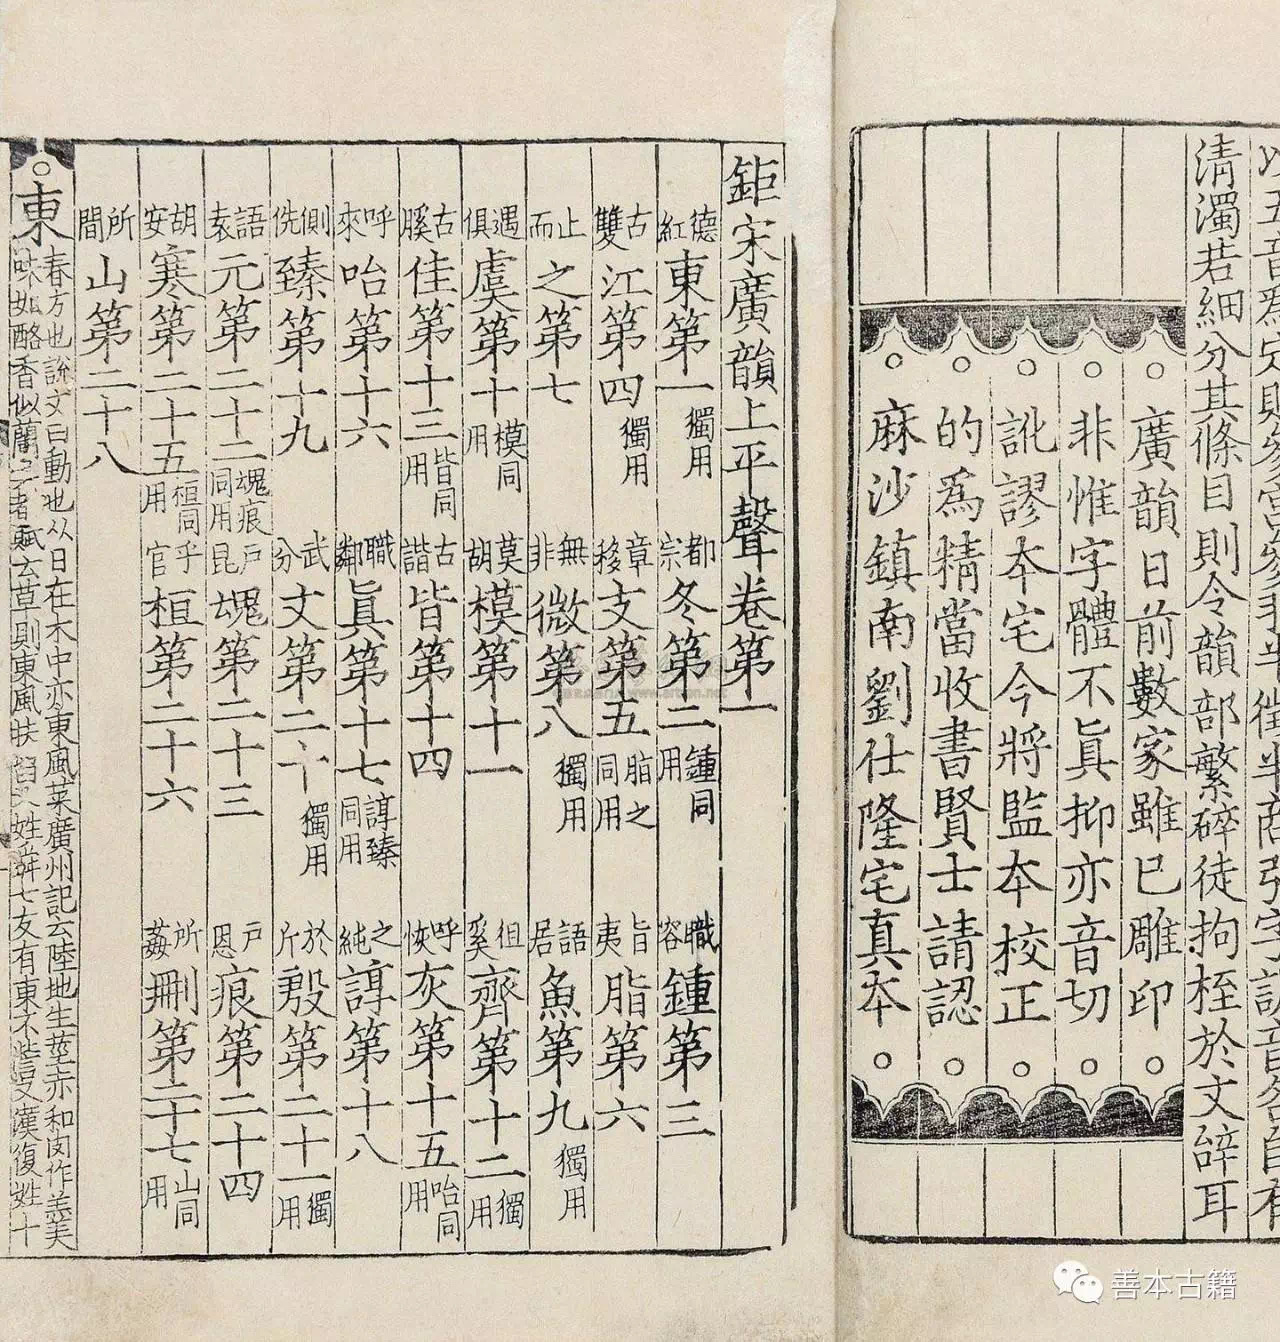 以五音爲定則參宮參羽半徵半商引字調音各自有
清濁若細分其條目則令韻部繁碎徒拘桎於文辭耳
廣韻日前數家雖已雕印
非惟字體不眞抑亦音切
訛謬夲宅今將監夲校正
的爲精當收書賢士請認
麻沙鎮南劉仕隆宅真夲
鉅宋廣韻上平聲卷第一
德紅東第一獨用 都宗冬第二鍾同用 職容鍾第三
古雙江第四獨用 章移支第五脂之同用 旨夷脂第六
止而之第七 無非微第八獨用 語居魚第九獨用
遇俱虞第十模同用 莫胡模第十一 徂奚齊第十二獨用
古膎佳第十三皆同用 古諧皆第十四 呼恢灰第十五咍同用
呼來咍第十六 職鄰眞第十七諄臻同用 之純諄第十八
側侁臻第十九 武分文第二十獨用 於斤殷第二十一獨用
語袁元第二十二魂痕同用 戶昆魂第二十三 戶恩痕第二十四
胡安寒第二十五桓同用 乎官桓第二十六 所姦刪第二十七山同用
所間山第二十八
東春方也說文曰動也从日在木中亦東風菜廣州記云陸地生莖赤和肉作羹美
味如酪香似蘭 賦云草則東風扶 又姓舜七友有東不訾又漢復姓十
善本古籍